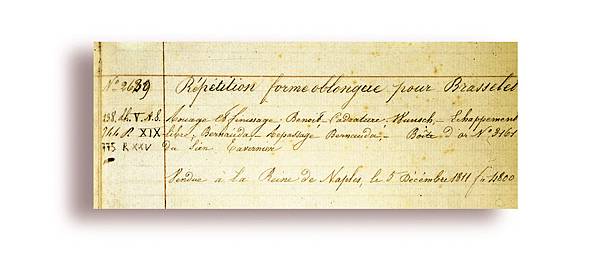 No 2639 Répétition forme oblongue pour Brasselet
Rouage & finissage Benoit Cadrature Wunsch Echappement
744 P. XIX libre, Bernauda repassage Bernauda Boite d'or No 3161
775 P. XXV du sien Tavernier
Vendue à la Reine de Naples, le 5 Décembre 1811 fs 4800